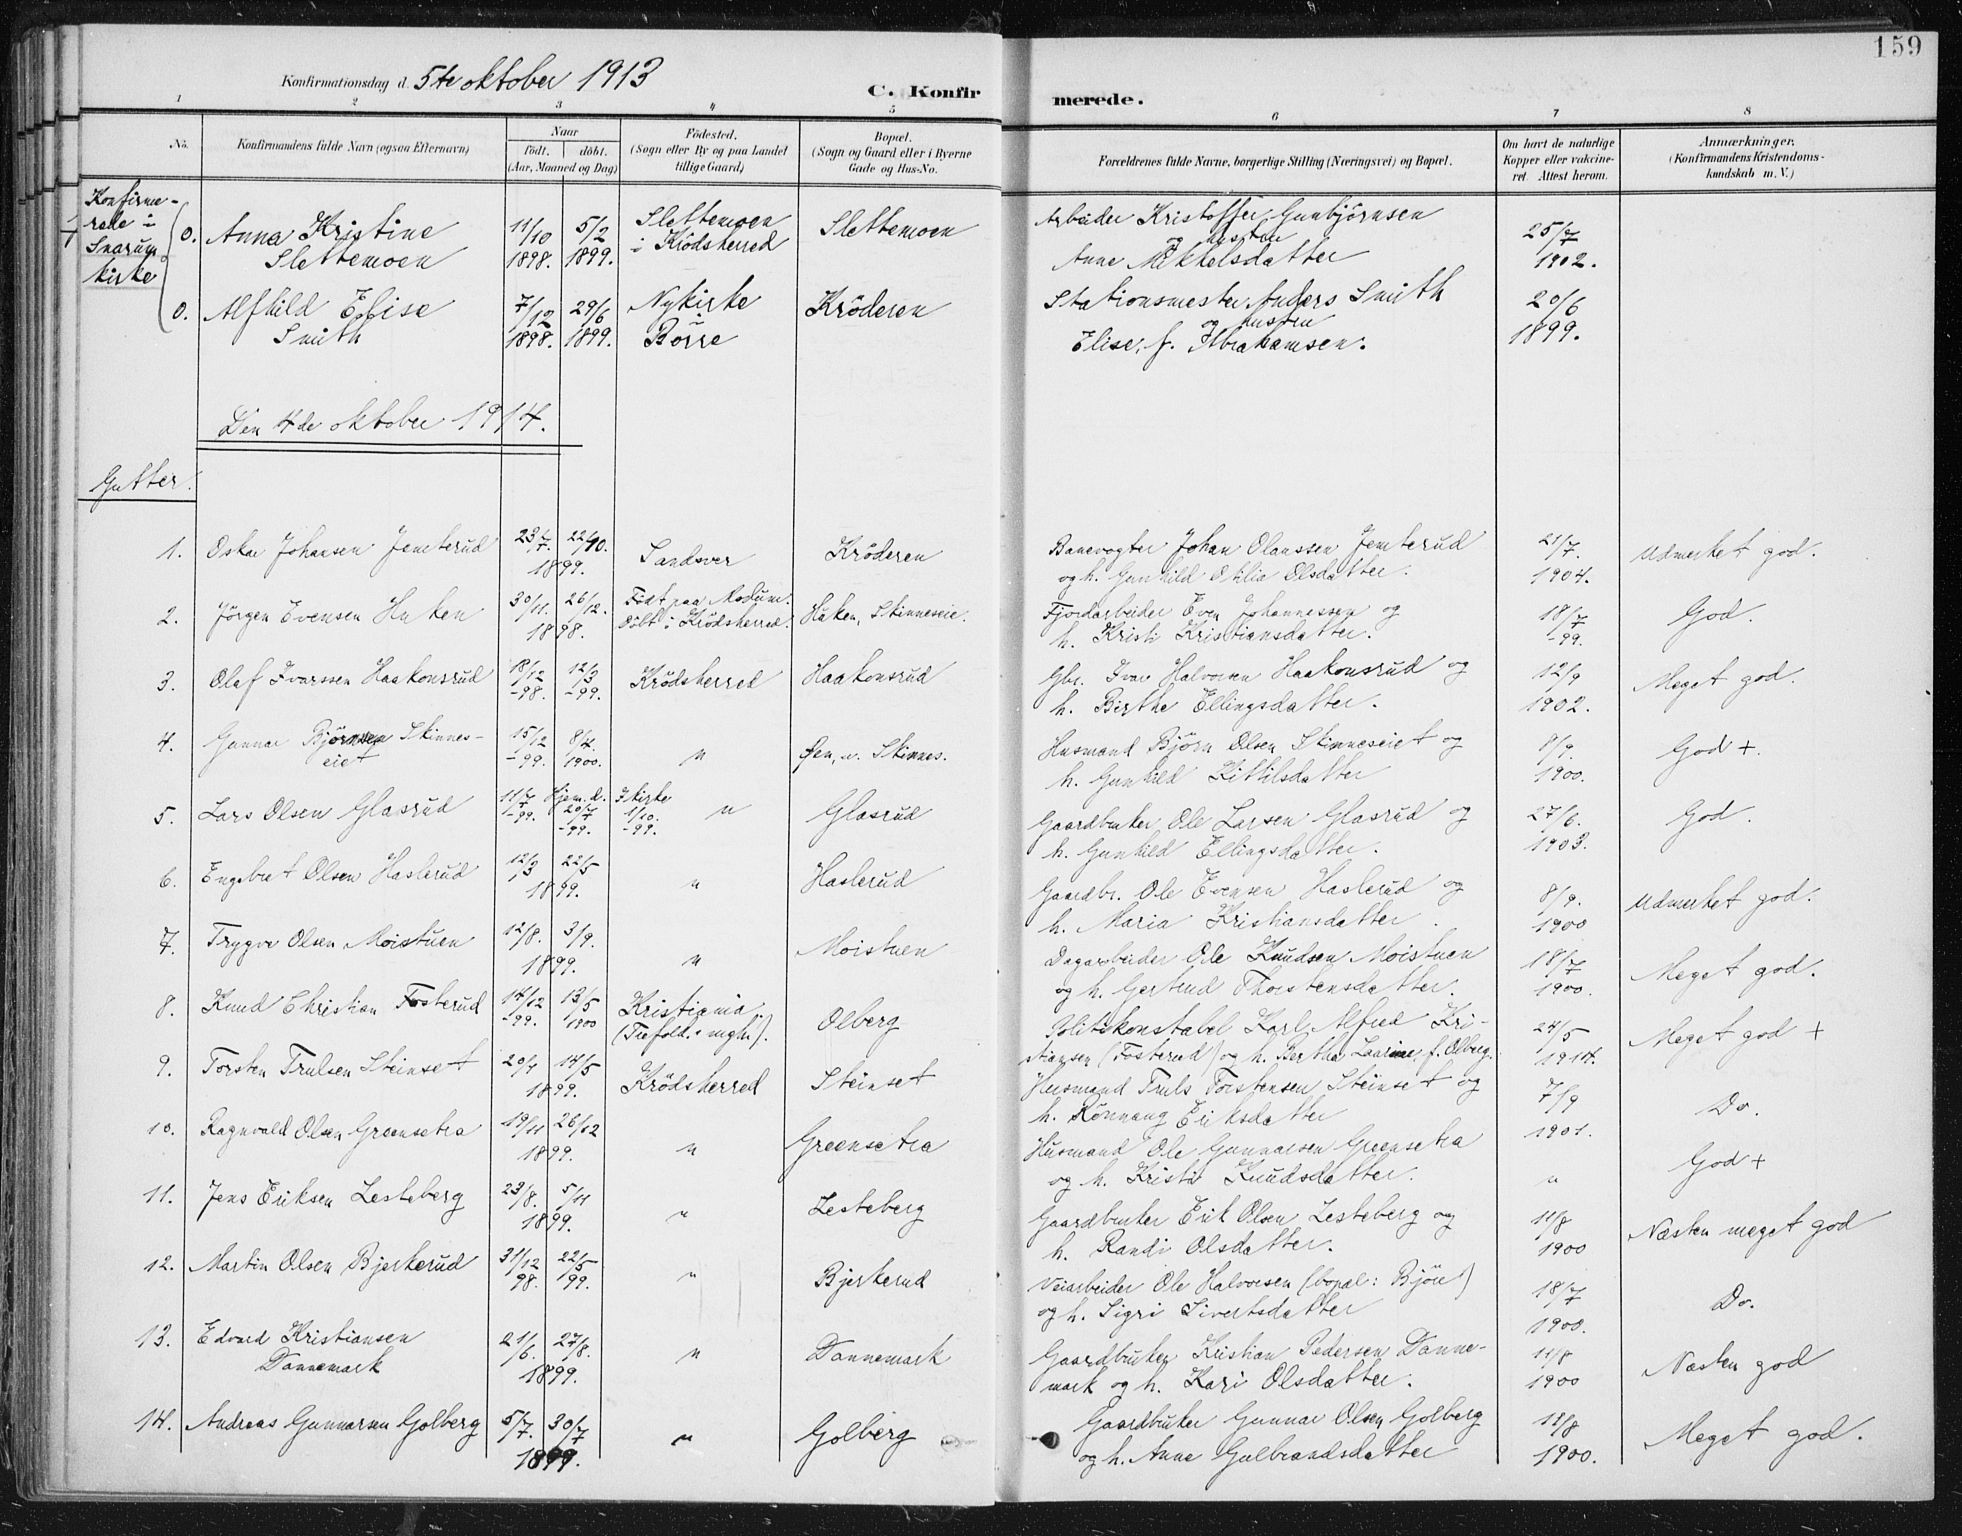 159
Konfirmationsdag d. 5te oktober 1913
C. Konfirmerede.
1 2 3 4 5 6 7 8
No.
Konfirmandens fulde Navn (ogsaa Efternavn)
Naar
födt. döbt.
(Aar, Maaned og Dag)
Födested.
(Sogn eller By og paa Landet
tillige Gaard)
Bopæl.
(Sogn og Gaard eller i Byerne
Gade og Hus-No.
Forældrenes fulde Navne, borgerlige Stilling (Næringsvei) og Bopæl.
Om havt de naturlige
Kopper eller vakcine-
ret. Attest herom.
Anmærkninger.
(Konfirmandens Kristendoms-
kundskab m. V.)
Konfirme-
rede i
Snarum
kirke
0. Anna Kristine 11/10 5/2 Slettemoen Slettemoen Arbeider Kristoffer Gunbjørnsen 25/7
Slettemoen 1898. 1899. i Krödsherred og hustru
Anne Mikkelsdatter 1902.
0. Alfhild Elise 7/12 29/6 Nykirke Kröderen Stationsmester Anders Smith 20/6
Smith 1898. 1899. Borre og hustru
Elise, f. Abrahamsen. 1899.
Den 4de oktober 1914.
Gutter.
1. Oskar Johansen Jemterud 23/7. 22/10. Sandsver Kröderen Banevogter Johan Olanssen Jemterud 21/7. Udmerket god.
1899. og h. Gunhild Otilia Olsdatter. 1904.
2. Jörgen Evensen Haken 30/11. 26/12. Födt paa Modum. Haken, Skinneseie. Fjordarbeider Even Johannessen og 18/7 God.
1898. Döbt i Krödsherred. h. Kristi Kristiansdatter. -99.
3. Olaf Ivarssen Haakonsrud 18/12 12/3 Krödsherred Haakonsrud Gbr. Ivar Halvorsen Haakonsrud og 12/9 Meget god.
-98. -99. h. Birthe Ellingsdatter. 1902.
4. Gunnar Björnsen Skinnes- 15/12 8/4 " Øen, u. Skinnes. Husmand Björn Olsen Skinneseiet og 8/9. God +.
eiet -99. 1900. h. Gunhild Kittilsdatter 1900.
5. Lars Olsen Glasrud 11/7 Hjem. d. I kirke " Glasrud Gaardbruker Ole Larsen Glasrud og 27/6. God.
-99. 20/7 1/10.
-99. -99. h. Gunhild Ellingsdatter. 1903.
6. Engebret Olsen Haslerud 12/3 22/5 " Haslerud Gaardbr. Ole Evensen Haslerud og 8/9. Udmerket god.
1899. h. Maria Kristiansdatter. 1900
7. Trygve Olsen Moistuen 12/8. 3/9. " Moistuen Dagarbeider Ole Knudsen Moistuen 18/7 Meget god.
1899. og h. Gertrud Thorstensdatter. 1900.
8. Knud Christian Fosterud 14/12 13/5 Kristiania. Olberg Politikonstabel Karl Alfred Kri- 24/5 Meget god +
-99. 1900 (Trefold. mgh.). stiansen (Fosterud) og h. Berthe Laurine, f. Olberg. 1914.
9. Torsten Trulsen Steinset 20/4 14/5 Krödsherred Steinset Husmand Truls Torstensen Steinset og 7/9 Do.
1899. h. Rönnaug Eriksdatter 1901.
10. Ragnvald Olsen Greensetra 19/11 26/12 " Greensetra Husmand Ole Gunnarsen Greensetra " God +
1899. og h. Kristi Knudsdatter.
11. Jens Eriksen Lesteberg 23/8. 5/11 " Lesteberg Gaardbruker Erik Olsen Lesteberg og 11/8 Næsten meget god
1899. h. Randi Olsdatter. 1900
12. Martin Olsen Bjerkerud 31/12 22/5 " Bjerkerud Veiarbeider Ole Halvorsen (bopæl: Björe) 18/7 Do.
98. 99. og h. Sigri Sivertsdatter 1900.
13. Edvard Kristiansen 21/6. 27/8. " Dannemark Gaardbruker Kristian Pedersen Danne- 11/8 Næsten god
Dannemark 1899. mark og h. Kari Olsdatter. 1900
14. Andreas Gunnarsen Golberg 5/7. 30/7 " Golberg Gaardbruker Gunnar Olsen Golberg 18/8 Meget god.
1899. og h. Anne Gulbrandsdatter 1900.